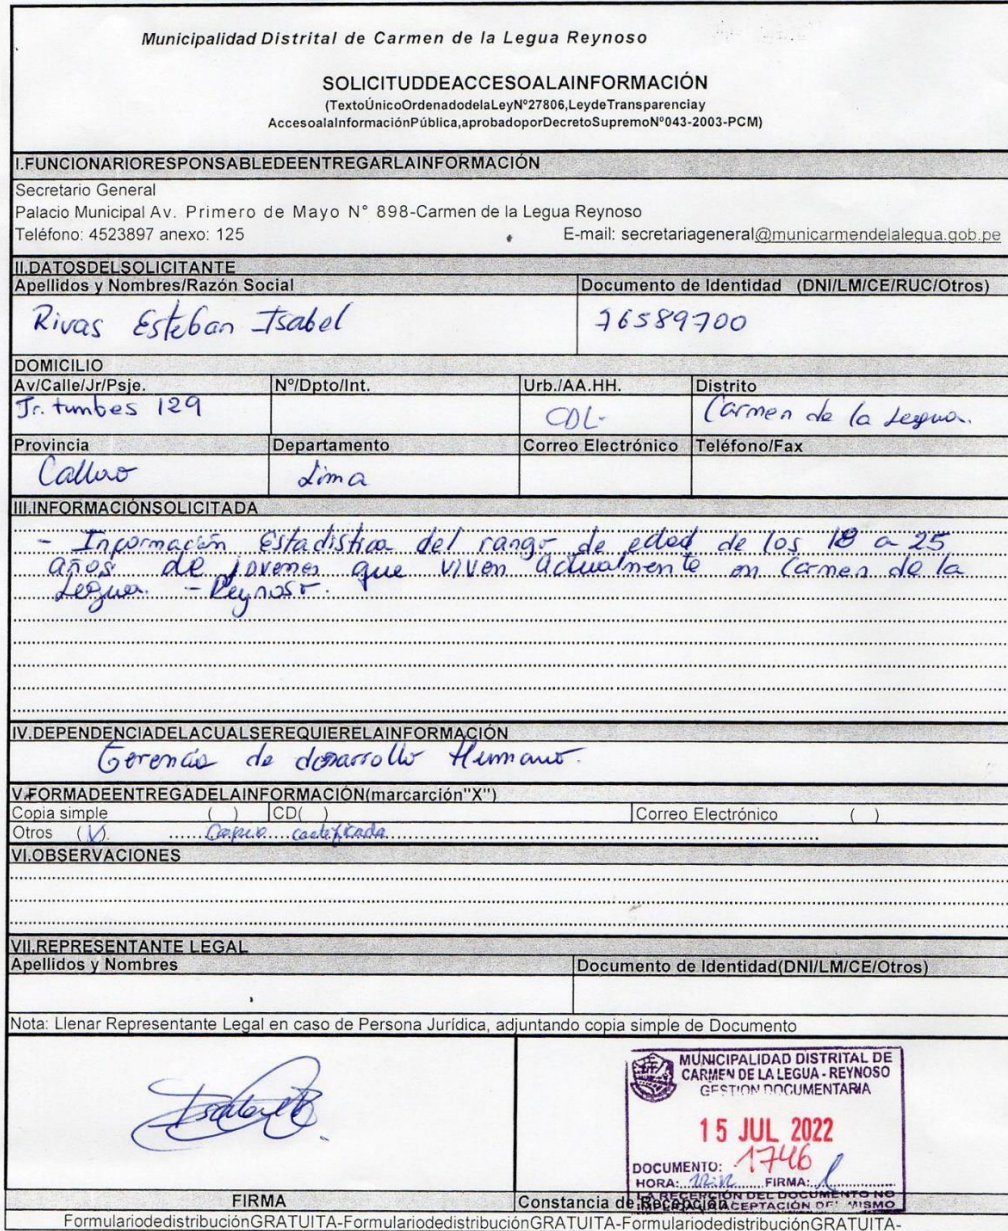 Municipalidad Distrital de Carmen de la Legua Reynoso
SOLICITUDDEACCESOALAINFORMACIÓN
(TextoÚnicoOrdenadodelaLeyNº27806,LeydeTransparenciay
AccesoalaInformaciónPública,aprobadoporDecretoSupremoNº043-2003-PCM)
I.FUNCIONARIORESPONSABLEDEENTREGARLAINFORMACIÓN
Secretario General
Palacio Municipal Av. Primero de Mayo N° 898-Carmen de la Legua Reynoso
Teléfono: 4523897 anexo: 125 E-mail: secretariageneral@municarmendelalegua.gob.pe
II.DATOSDELSOLICITANTE
Apellidos y Nombres/Razón Social Documento de Identidad (DNI/LM/CE/RUC/Otros)
Rivas Esteban Isabel 76589700
DOMICILIO
Av/Calle/Jr/Psje. Nº/Dpto/Int. Urb./AA.HH. Distrito
Jr. tumbes 129 CDL- Carmen de la Legua.
Provincia Departamento Correo Electrónico Teléfono/Fax
Callao Lima
III.INFORMACIÓNSOLICITADA
- Información Estadistica del rango de edad de los 18 a 25
años de jovenes que viven actualmente en Carmen de la
Legua. - Reynoso.
IV.DEPENDENCIADELACUALSEREQUIERELAINFORMACIÓN
Gerencia de desarrollo Humano.
V.FORMADEENTREGADELAINFORMACIÓN(marcarción"X")
Copia simple ( ) CD( ) Correo Electrónico ( )
Otros (V). Copia certificada
VI.OBSERVACIONES
VII.REPRESENTANTE LEGAL
Apellidos y Nombres Documento de Identidad(DNI/LM/CE/Otros)
Nota: Llenar Representante Legal en caso de Persona Jurídica, adjuntando copia simple de Documento
MUNICIPALIDAD DISTRITAL DE
CARMEN DE LA LEGUA - REYNOSO
GESTION DOCUMENTARIA
15 JUL 2022
DOCUMENTO: 1746
HORA: FIRMA:
LA RECEPCIÓN DEL DOCUMENTO NO
IMPLICA LA ACEPTACIÓN DEL MISMO
FIRMA Constancia de Recepción
FormulariodedistribuciónGRATUITA-FormulariodedistribuciónGRATUITA-FormulariodedistribuciónGRATUITA-